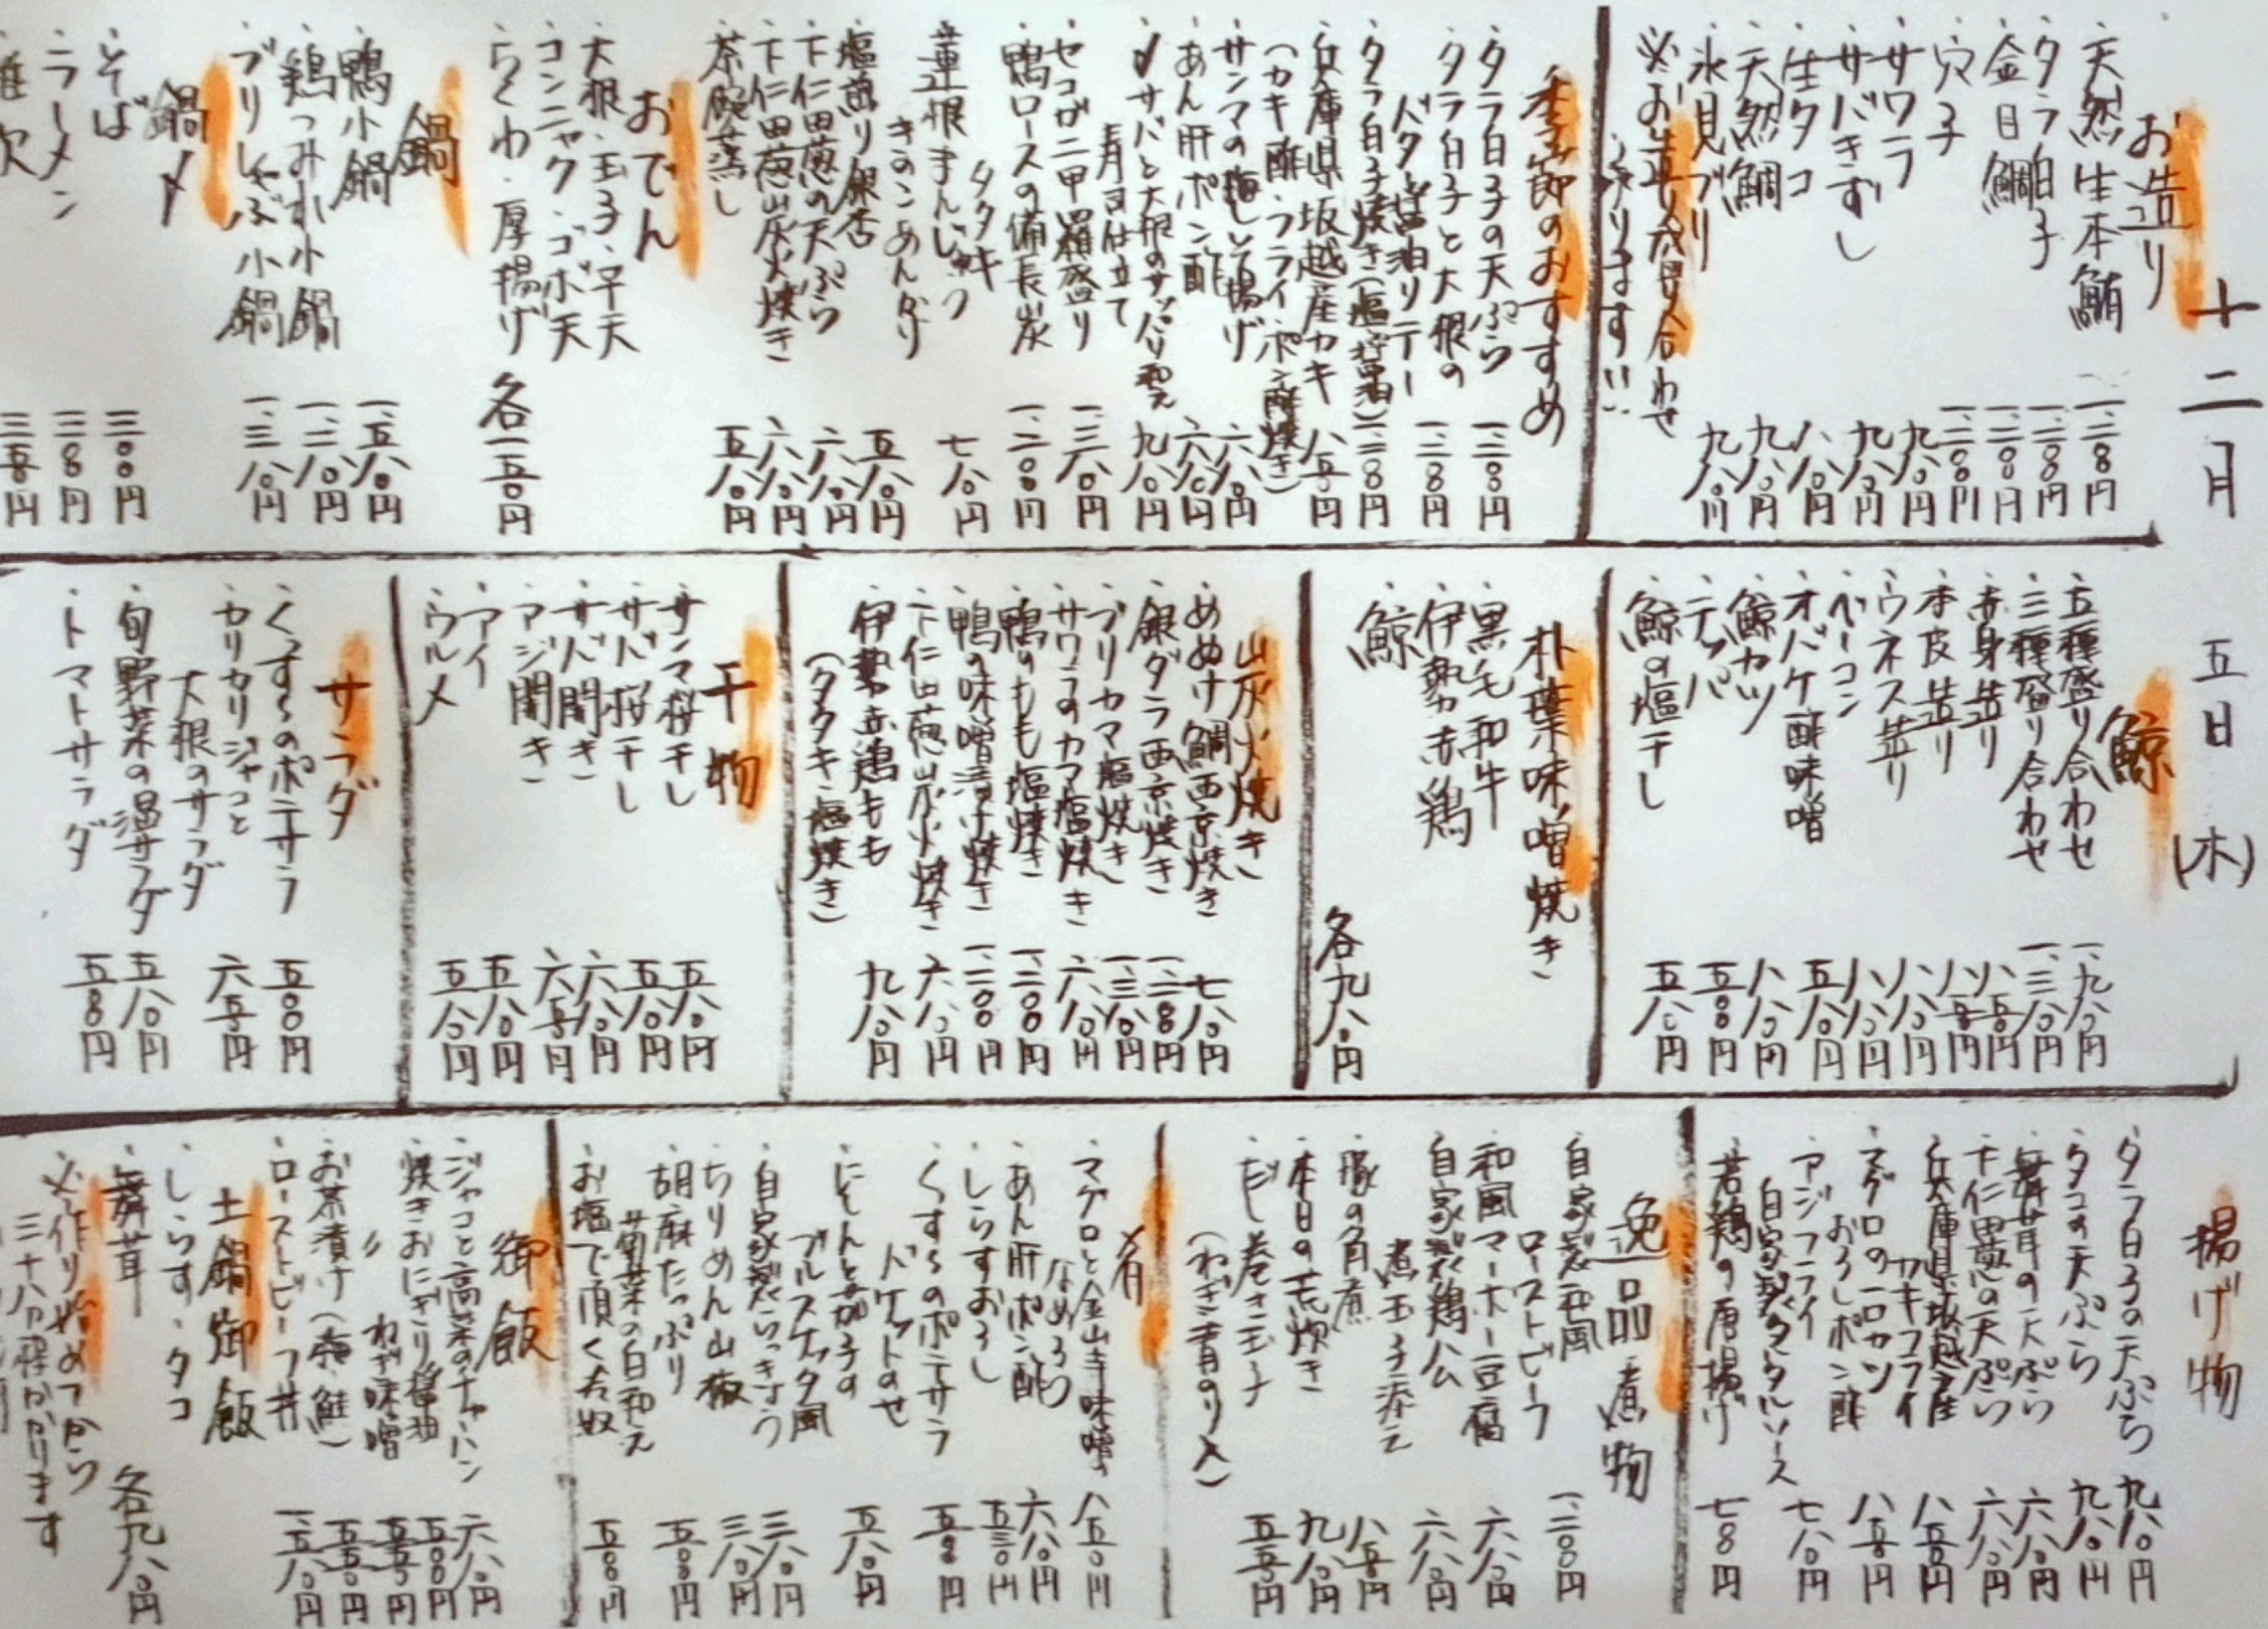 十二月 五日(木)
お造り
・天然生本鮪
・タラ白子 一、二〇〇円
・金目鯛 一、二〇〇円
・穴子 一、二〇〇円
・サワラ 九八〇円
・サバきずし 九八〇円
・生タコ 八八〇円
・天然鯛 九八〇円
・氷見ブリ 九八〇円
※お造り盛り合わせ
承ります!!
季節のおすすめ
・タラ白子の天ぷら
・タラ白子と大根の
バター醤油ソテー
・タラ白子焼き(塩・醤油)
・兵庫県坂越産カキ 八五〇円
(カキ酢・フライ・ポン酢焼き)
・サンマの梅しそ揚げ 六八〇円
・あん肝ポン酢 六八〇円
・〆サバと大根のサッパリ和え 九八〇円
寿司仕立て
・セコガニ甲羅盛り 一、三八〇円
・鴨ロースの備長炭 一、二〇〇円
タタキ
・蓮根まんじゅう 七八〇円
きのこあんかけ
・塩煎り銀杏 五八〇円
・下仁田葱の天ぷら 六八〇円
・下仁田葱炭火焼き 六八〇円
・茶碗蒸し 五八〇円
おでん
・大根・玉子・平天
・コンニャク・ゴボ天
・ちくわ・厚揚げ 各一五〇円
鍋
・鴨小鍋 一、五八〇円
・鶏つみれ小鍋 一、二八〇円
・ブリしゃぶ小鍋 一、三八〇円
鍋〆
・そば 三〇〇円
・ラーメン
・雑炊
鯨
・五種盛り合わせ 一、九八〇円
・三種盛り合わせ 一、三八〇円
・赤身造り 八五〇円
・本皮造り
・ウネス造り 八八〇円
・ベーコン 八八〇円
・オバケ酢味噌 五八〇円
・鯨カツ 八八〇円
・テッパ
・鯨の塩干し 五八〇円
朴葉味噌焼き
・黒毛和牛
・伊勢赤鶏
・鯨
各九八〇円
炭火焼き
・めぬけ鯛西京焼き 七八〇円
・銀ダラ西京焼き
・ブリカマ塩焼き 一、三八〇円
・サワラのカマ塩焼き 六八〇円
・鴨のもも塩焼き 一、二〇〇円
・鴨の味噌漬け焼き 一、二〇〇円
・下仁田葱炭火焼き 六八〇円
・伊勢赤鶏もも 九八〇円
(タタキ・塩焼き)
干物
・サンマ桜干し 五八〇円
・サバ桜干し 五八〇円
・サバ開き 六八〇円
・アジ開き 六五〇円
・アイ 五八〇円
・ウルメ 五八〇円
サラダ
・くずし冷ポテサラ 五〇〇円
・カリカリジャコと
大根のサラダ 六五〇円
・旬野菜の温サラダ 五八〇円
・トマトサラダ
揚げ物
・タラ白子の天ぷら 九八〇円
・タコの天ぷら 九八〇円
・舞茸の天ぷら 六八〇円
・下仁田葱の天ぷら 六八〇円
・兵庫県坂越産
カキフライ 八五〇円
・マグロの一口カツ
おろしポン酢 八五〇円
・アジフライ
自家製タルタルソース 七八〇円
・若鶏の唐揚げ
逸品・煮物
・自家製和風
ローストビーフ 一、二〇〇円
・和風マーボー豆腐 六八〇円
・自家製鶏ハム
煮玉子添え 六八〇円
・豚の角煮 八五〇円
・本日の荒炊き 九八〇円
・だし巻き玉子 五五〇円
(ねぎ・青のり入)
肴
・マグロと金山寺味噌の
なめろう 八五〇円
・あん肝ポン酢 六八〇円
・しらすおろし
・くずし冷ポテサラ 五〇〇円
バケットのせ
・にしんと茄子の
ブルスケッタ風 五八〇円
・自家製らっきょう 三八〇円
・ちりめん山椒 三八〇円
・胡麻たっぷり
菊菜の白和え 五〇〇円
・お塩で頂く冷奴 五〇〇円
御飯
・ジャコと高菜のチャーハン 六八〇円
・焼きおにぎり醤油
・〃 ねぎ味噌
・お茶漬け(梅・鮭)
・ローストビーフ丼 一、五八〇円
土鍋御飯
・しらす・タコ
・舞茸 各九八〇円
※作り始めてから
三十八分程かかります